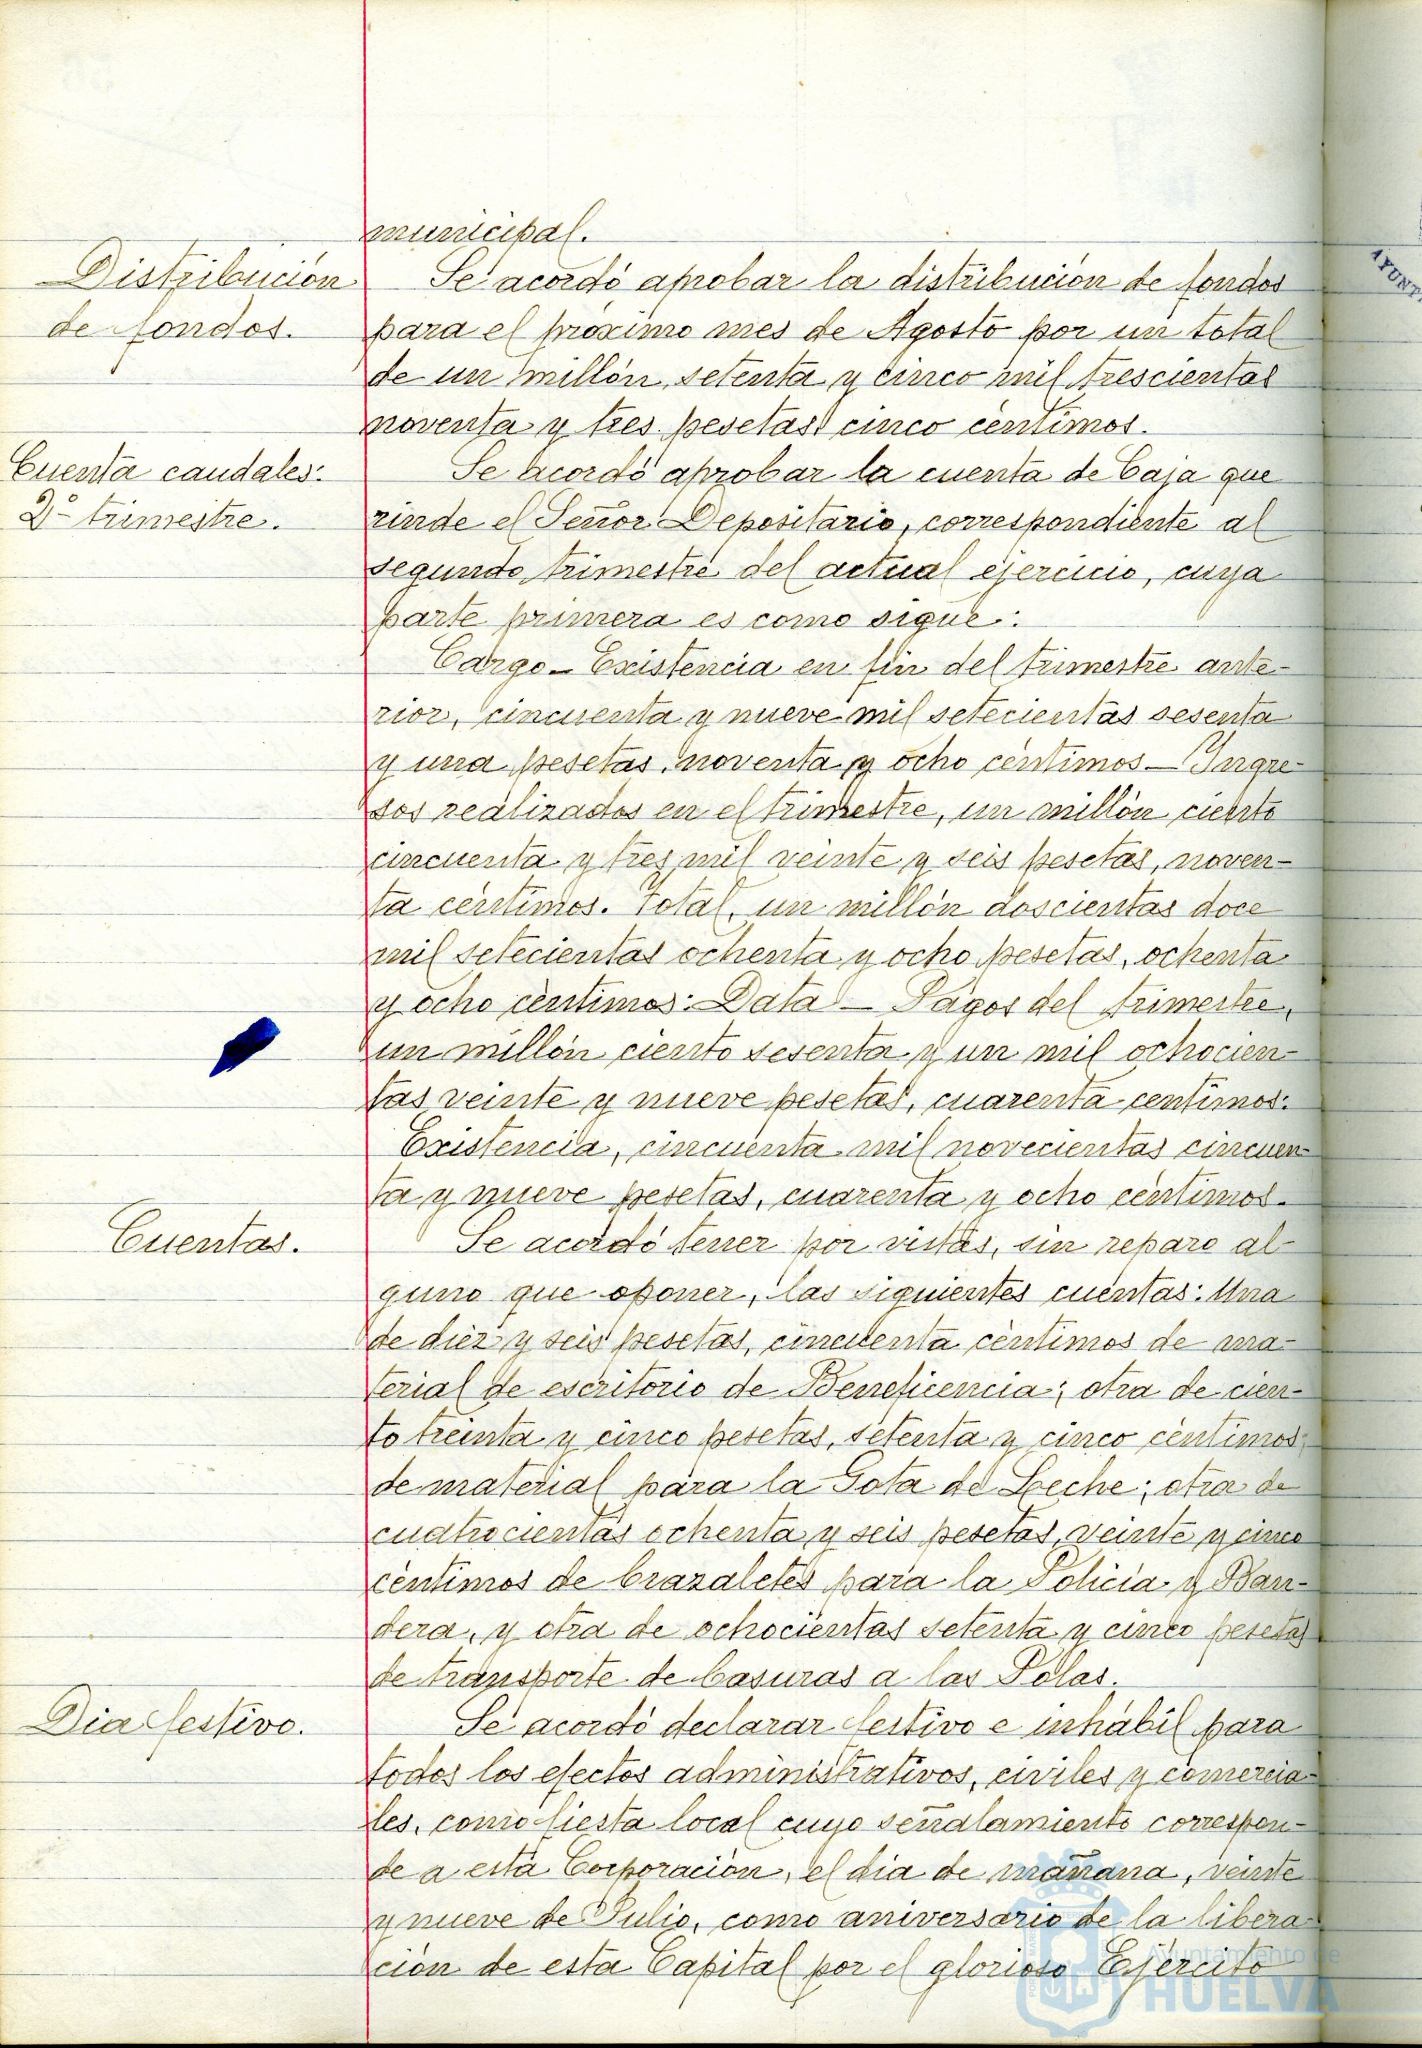 municipal.
Distribución
de fondos.
Se acordó aprobar la distribución de fondos
para el próximo mes de Agosto por un total
de un millón, setenta y cinco mil trescientas
noventa y tres pesetas cinco céntimos.
Cuenta caudales:
2º trimestre.
Se acordó aprobar la cuenta de Caja que
rinde el Señor Depositario, correspondiente al
segundo trimestre del actual ejercicio, cuya
parte primera es como sigue:
Cargo_ Existencia en fin del trimestre ante-
rior, cincuenta y nueve mil setecientas sesenta
y una pesetas, noventa y ocho céntimos— Yngre-
sos realizados en el trimestre, un millón ciento
cincuenta y tres mil veinte y seis pesetas, noven-
ta céntimos. Total, un millón doscientas doce
mil setecientas ochenta y ocho pesetas, ochenta
y ocho céntimos: Data — Pagos del trimestre,
un millón ciento sesenta y un mil ochocien-
tas veinte y nueve pesetas, cuarenta centimos:
Existencia, cincuenta mil novecientas cincuen-
ta y nueve pesetas, cuarenta y ocho céntimos.
Cuentas.
Se acordó tener por vistas, sin reparo al-
guno que oponer, las siguientes cuentas: Una
de diez y seis pesetas, cincuenta céntimos de ma-
terial de escritorio de Beneficencia; otra de cien-
to treinta y cinco pesetas, setenta y cinco céntimos,
de material para la Gota de Leche; otra de
cuatrocientas ochenta y seis pesetas, veinte y cinco
céntimos de brazaletes para la Policía y Ban-
dera, y otra de ochocientas setenta y cinco pesetas
de transporte de basuras a las Polas.
Dia festivo.
Se acordó declarar festivo e inhábil para
todos los efectos administrativos, civiles y comercia-
les, como fiesta local cuyo señalamiento correspon-
de a esta Corporación, el dia de mañana, veinte
y nueve de Julio, como aniversario de la libera-
ción de esta Capital por el glorioso Ejército
Ayuntamiento de
HUELVA